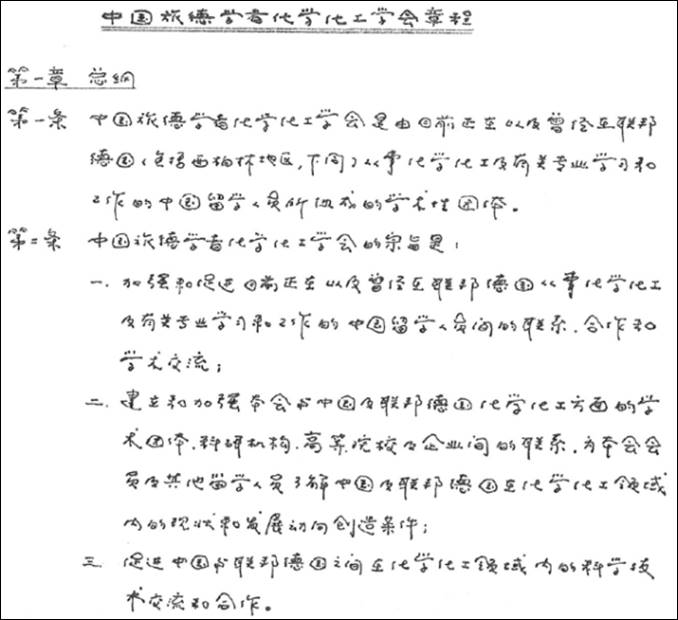 中国旅德学者化学化工学会章程
第一章 总纲
第一条 中国旅德学者化学化工学会是由目前正在以及曾经在联邦
德国(包括西柏林地区,下同)从事化学化工及有关专业学习和
工作的中国留学人员所组成的学术性团体。
第二条 中国旅德学者化学化工学会的宗旨是:
一. 加强和促进目前正在以及曾经在联邦德国从事化学化工
及有关专业学习和工作的中国留学人员间的联系、合作和
学术交流;
二. 建立和加强本会与中国及联邦德国化学化工方面的学
术团体、科研机构、高等院校及企业间的联系,为本会会
员及其他留学人员了解中国及联邦德国在化学化工领域
内的现状和发展动向创造条件;
三. 促进中国与联邦德国之间在化学化工领域内的科学技
术交流和合作。